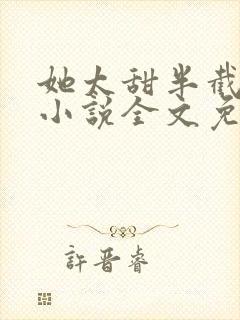 她太甜半截
小說全文免
許晋睿